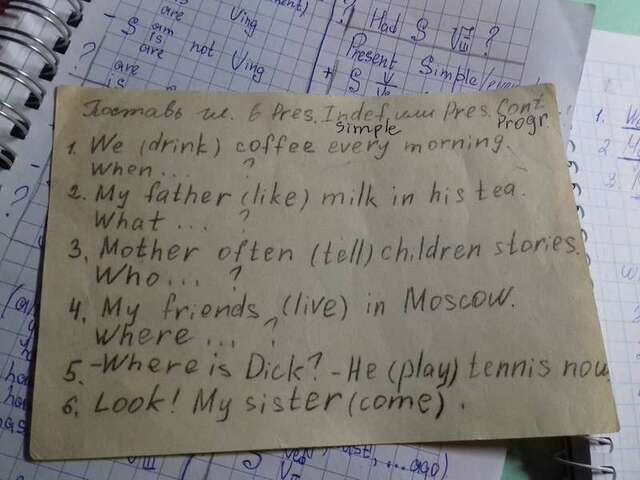 are Ving
- S am
is
are not Ving
?
are
? Had S V ?
III
Present Simple
+ S V
Поставь гл. в Pres. Indef. или Pres. Cont.
simple Progr.
1. We (drink) coffee every morning.
When... ?
2. My father (like) milk in his tea.
What ... ?
3. Mother often (tell) children stories.
Who... ?
4. My friends (live) in Moscow.
Where ... ?
5. -Where is Dick? - He (play) tennis now.
6. Look! My sister (come).
1.
2.
ago)